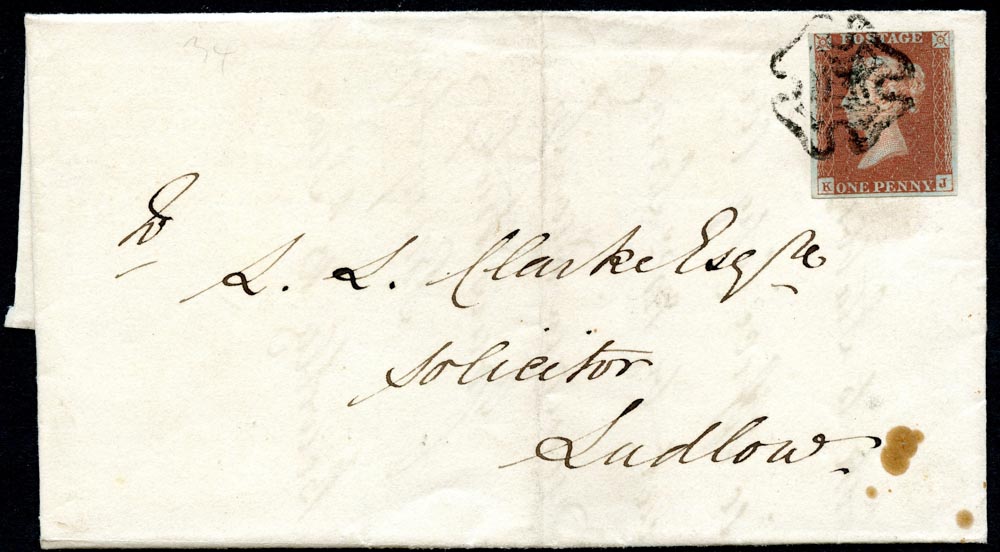 34
POSTAGE
K J
ONE PENNY
To
L. L. Clarke Esqre
Solicitor
Ludlow